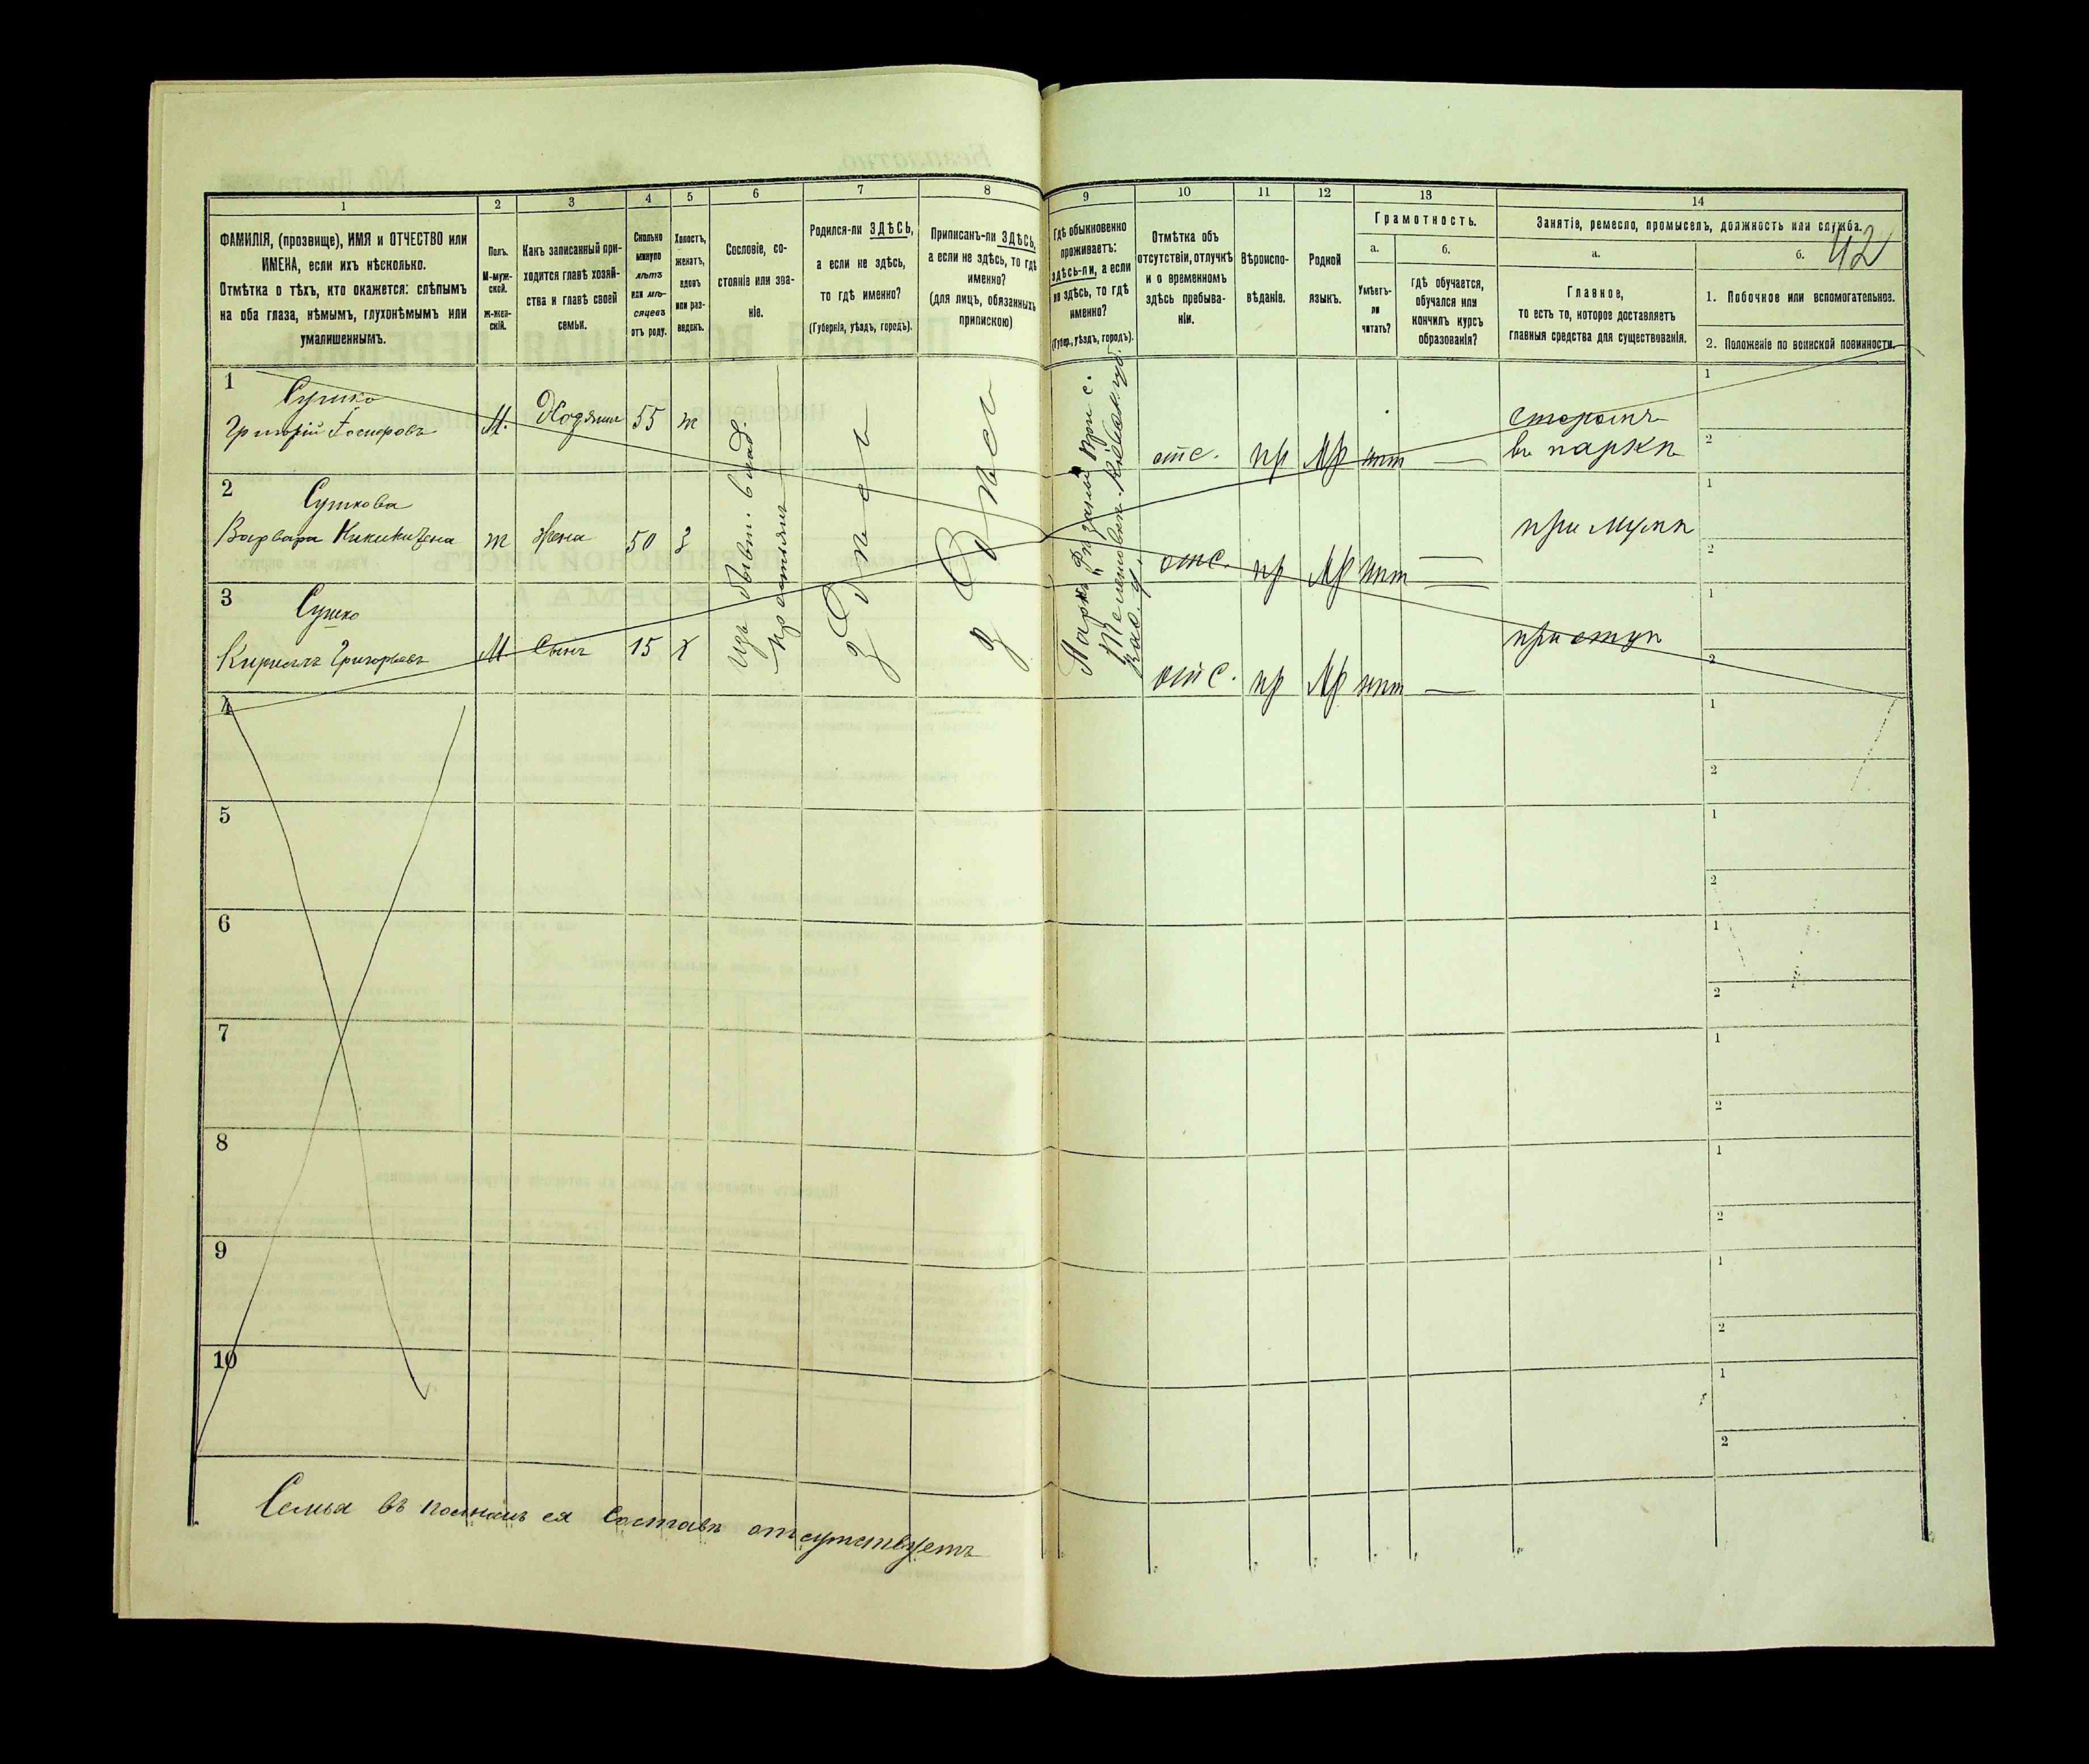 1
2
3
4
5
6
7
8
9
10
11
12
13
14
ФАМИЛІЯ, (прозвище), ИМЯ и ОТЧЕСТВО или
ИМЕНА, если ихъ нѣсколько.
Отмѣтка о тѣхъ, кто окажется: слѣпымъ
на оба глаза, нѣмымъ, глухонѣмымъ или
умалишеннымъ.
Полъ.
М-муж-
ской.
Ж-жен-
скій.
Какъ записанный при-
ходится главѣ хозяй-
ства и главѣ своей
семьи.
Сколько
минуло
лѣтъ
или мѣ-
сяцевъ
отъ роду.
Холостъ,
женатъ,
вдовъ
или раз-
веденъ.
Сословіе, со-
стояніе или зва-
ніе.
Родился-ли ЗДѢСЬ,
а если не здѣсь,
то гдѣ именно?
(Губернія, уѣздъ, городъ).
Приписанъ-ли ЗДѢСЬ,
а если не здѣсь, то гдѣ
именно?
(для лицъ, обязанныхъ
припискою)
Гдѣ обыкновенно
проживаетъ:
здѣсь-ли, а если
не здѣсь, то гдѣ
именно?
(Губер., уѣздъ, городъ).
Отмѣтка объ
отсутствіи, отлучкѣ
и о временномъ
здѣсь пребыва-
ніи.
Вѣроиспо-
вѣданіе.
Родной
языкъ.
Грамотность.
а.
Умѣетъ-
ли
читать?
б.
гдѣ обучается,
обучался или
кончилъ курсъ
образованія?
Занятіе, ремесло, промыселъ, должность или служба.
42
а.
Главное,
то есть то, которое доставляетъ
главныя средства для существованія.
б.
1. Побочное или вспомогательное.
2. Положеніе по воинской повинности.
1
Сушко
Григорій М. Хозяинъ 55 ж
отс. пр Мр нѣт —
сторожъ
въ паркѣ
1
2
2
Сушкова
Варвара ж жена 50 з
отс. пр Мр нѣт —
при мужѣ
1
2
3
Сушко
Кириллъ Григорьевъ М. Сынъ 15 х
отс. пр Мр нѣт —
1
2
Изъ бывш. влад.
крестьянъ
здѣсь
здѣсь
4
1
2
5
1
2
6
1
2
7
1
2
8
1
2
9
1
2
10
1
2
Семья въ полномъ ея составѣ отсутствуетъ